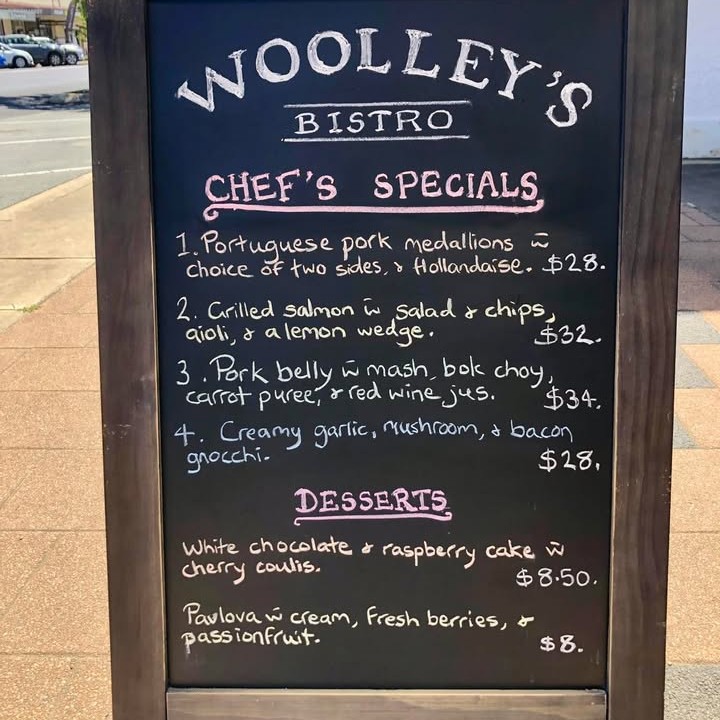 WOOLLEY'S
BISTRO
CHEF'S SPECIALS
1. Portuguese pork medallions w̄
choice of two sides, & Hollandaise. $28.
2. Grilled salmon w̄ salad & chips,
aioli, & a lemon wedge. $32.
3. Pork belly w̄ mash, bok choy,
carrot puree, & red wine jus. $34.
4. Creamy garlic, mushroom, & bacon
gnocchi. $28.
DESSERTS
White chocolate & raspberry cake w̄
cherry coulis. $8.50.
Pavlova w̄ cream, fresh berries, &
passionfruit. $8.